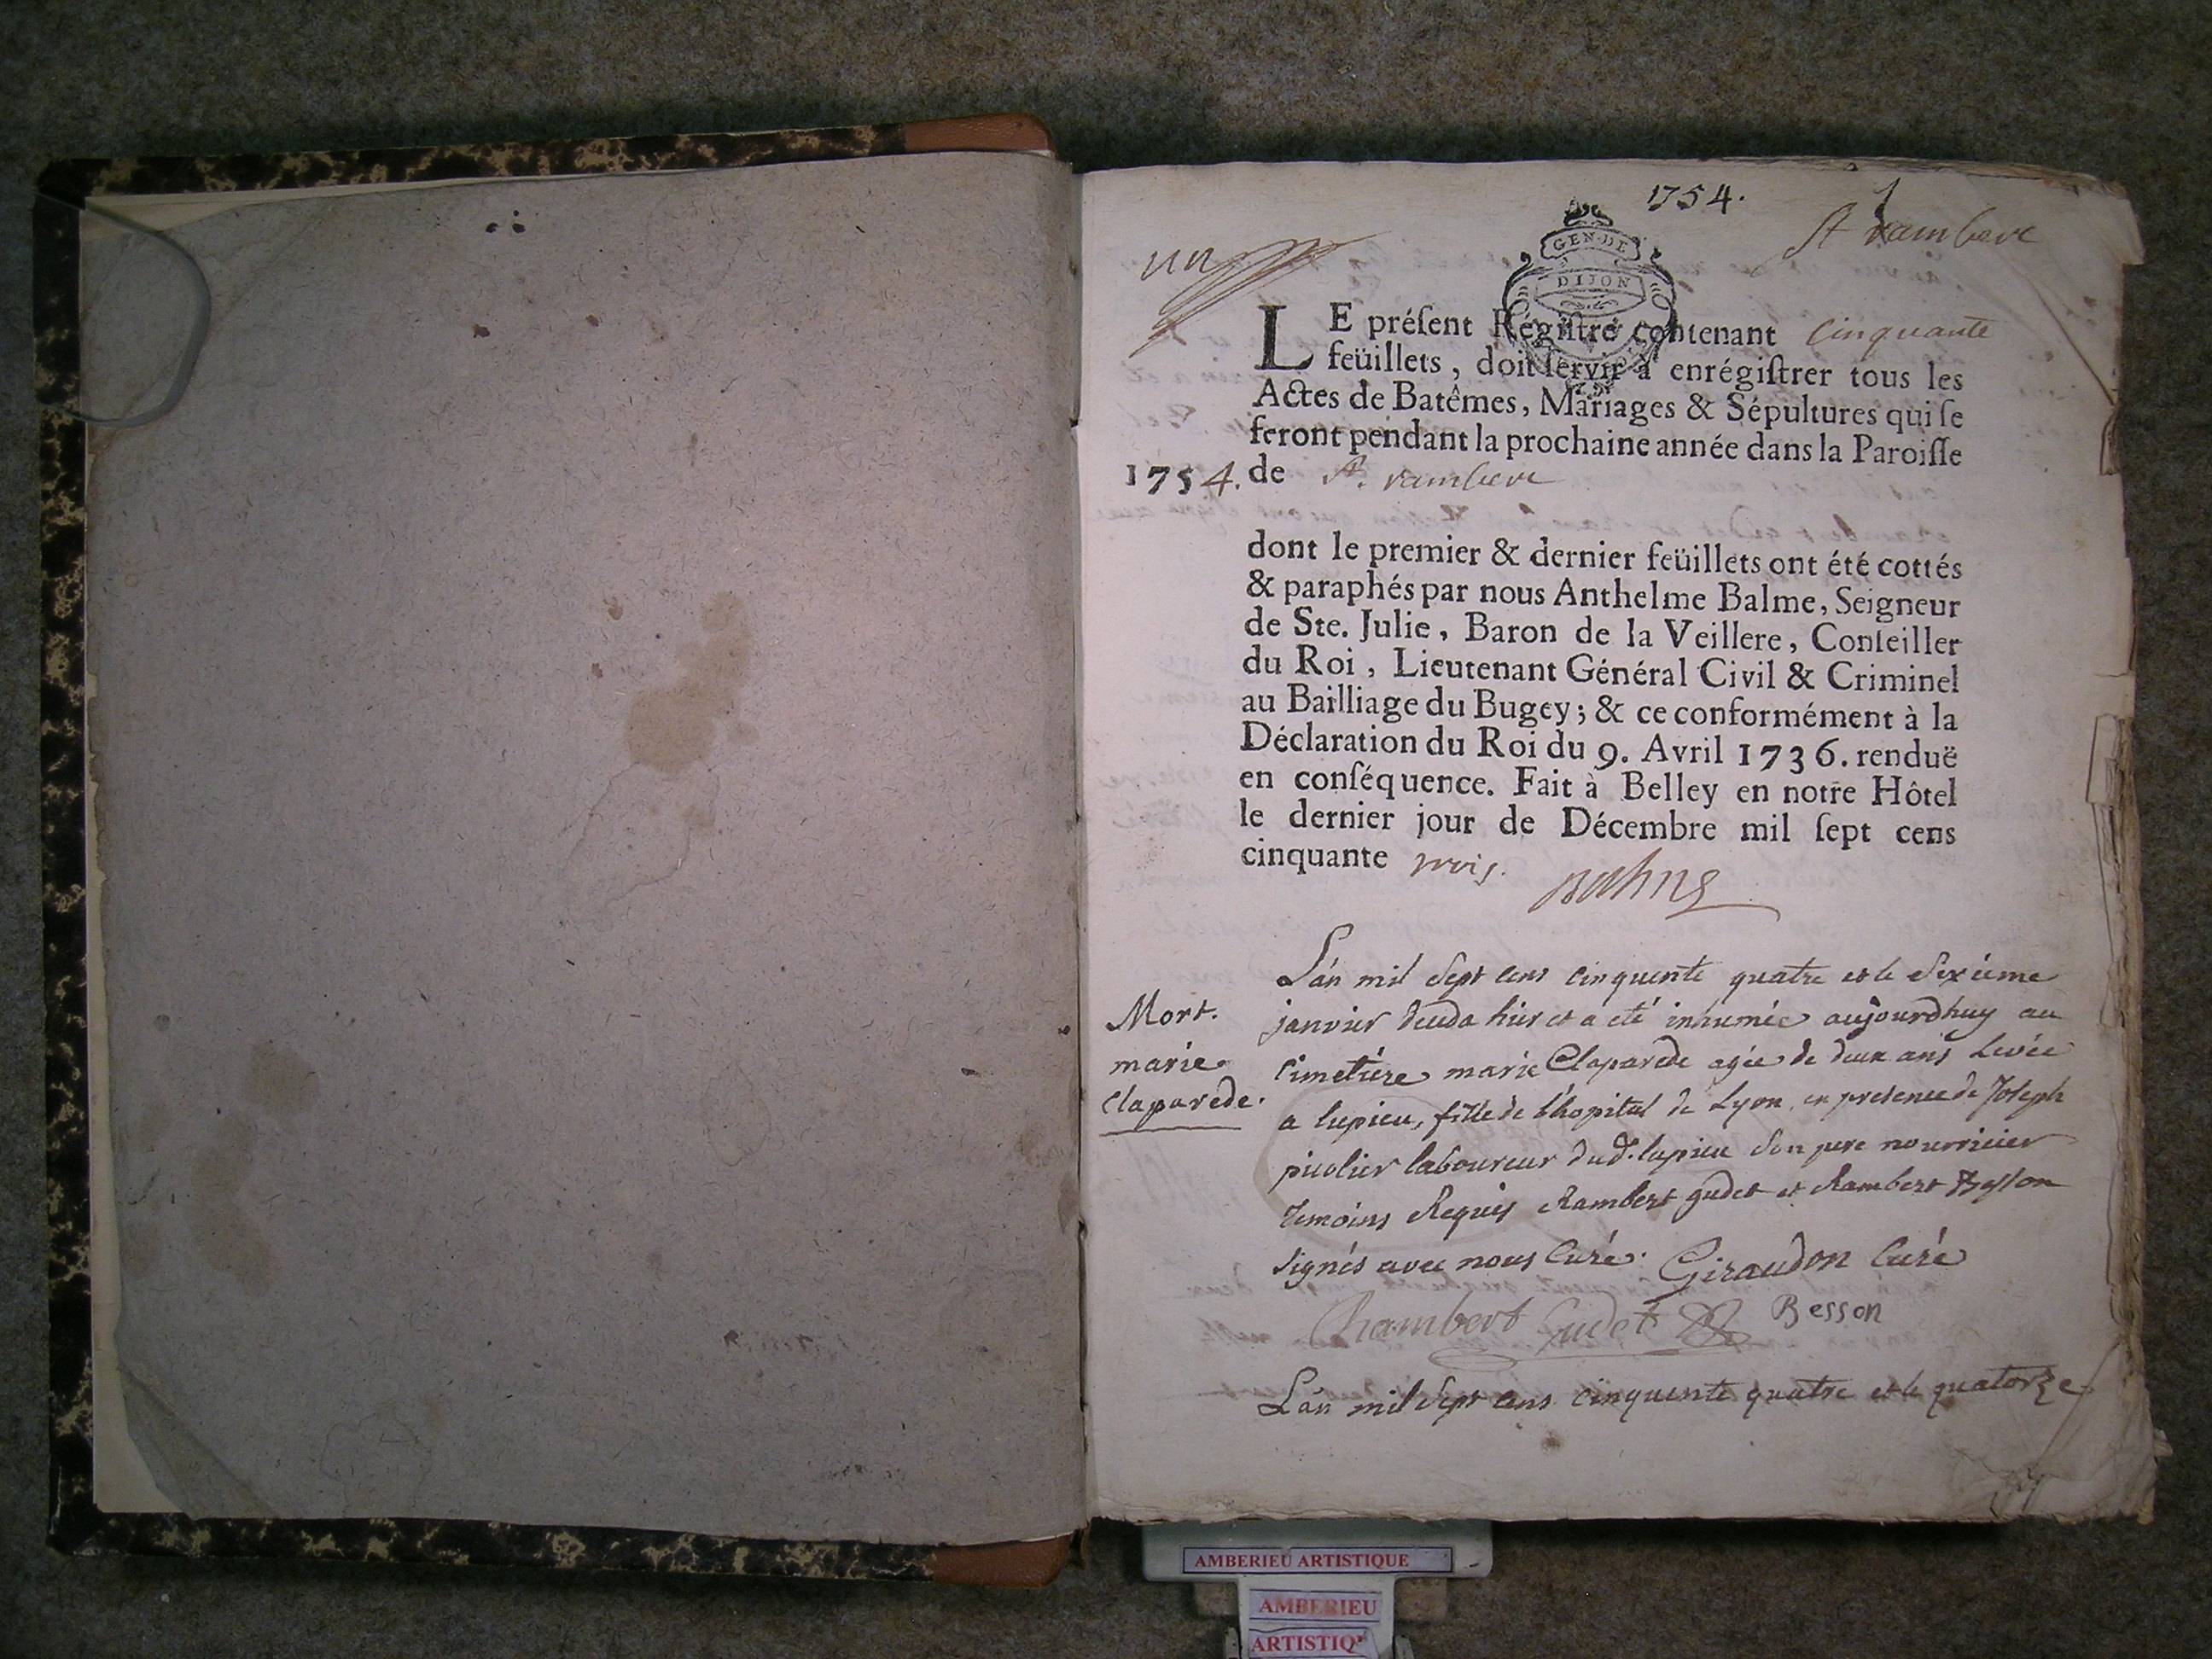 1754.
St rambert
un
GEN. DE
DIJON
LE préſent Régiſtre contenant Cinquante
feüillets, doit ſervir à enrégiſtrer tous les
Actes de Batêmes, Mariages & Sépultures qui ſe
feront pendant la prochaine année dans la Paroiſſe
1754. de St. rambert
dont le premier & dernier feüillets ont été cottés
& paraphés par nous Anthelme Balme, Seigneur
de Ste. Julie, Baron de la Veillere, Conſeiller
du Roi, Lieutenant Général Civil & Criminel
au Bailliage du Bugey; & ce conformément à la
Déclaration du Roi du 9. Avril 1736. renduë
en conſéquence. Fait à Belley en notre Hôtel
le dernier jour de Décembre mil ſept cens
cinquante trois.
Balme
Mort.
marie
Claparede.
L'an mil sept cens cinquente quatre et le sixieme
janvier deceda hier et a eté inhumée aujourdhuy au
Cimetiere marie Claparede agée de deux ans Levée
a lupieu, fille de l'hopital de Lyon, en presence de Joseph
picolier laboureur dud. lupieu son pere nourricier
temoins Requis Rambert gudet et Rambert Besson
signés avec nous Curé. Giraudon Curé
Rambert Gudet Besson
L'an mil sept cens cinquente quatre et le quatorze
AMBERIEU ARTISTIQUE
AMBERIEU
ARTISTIQ